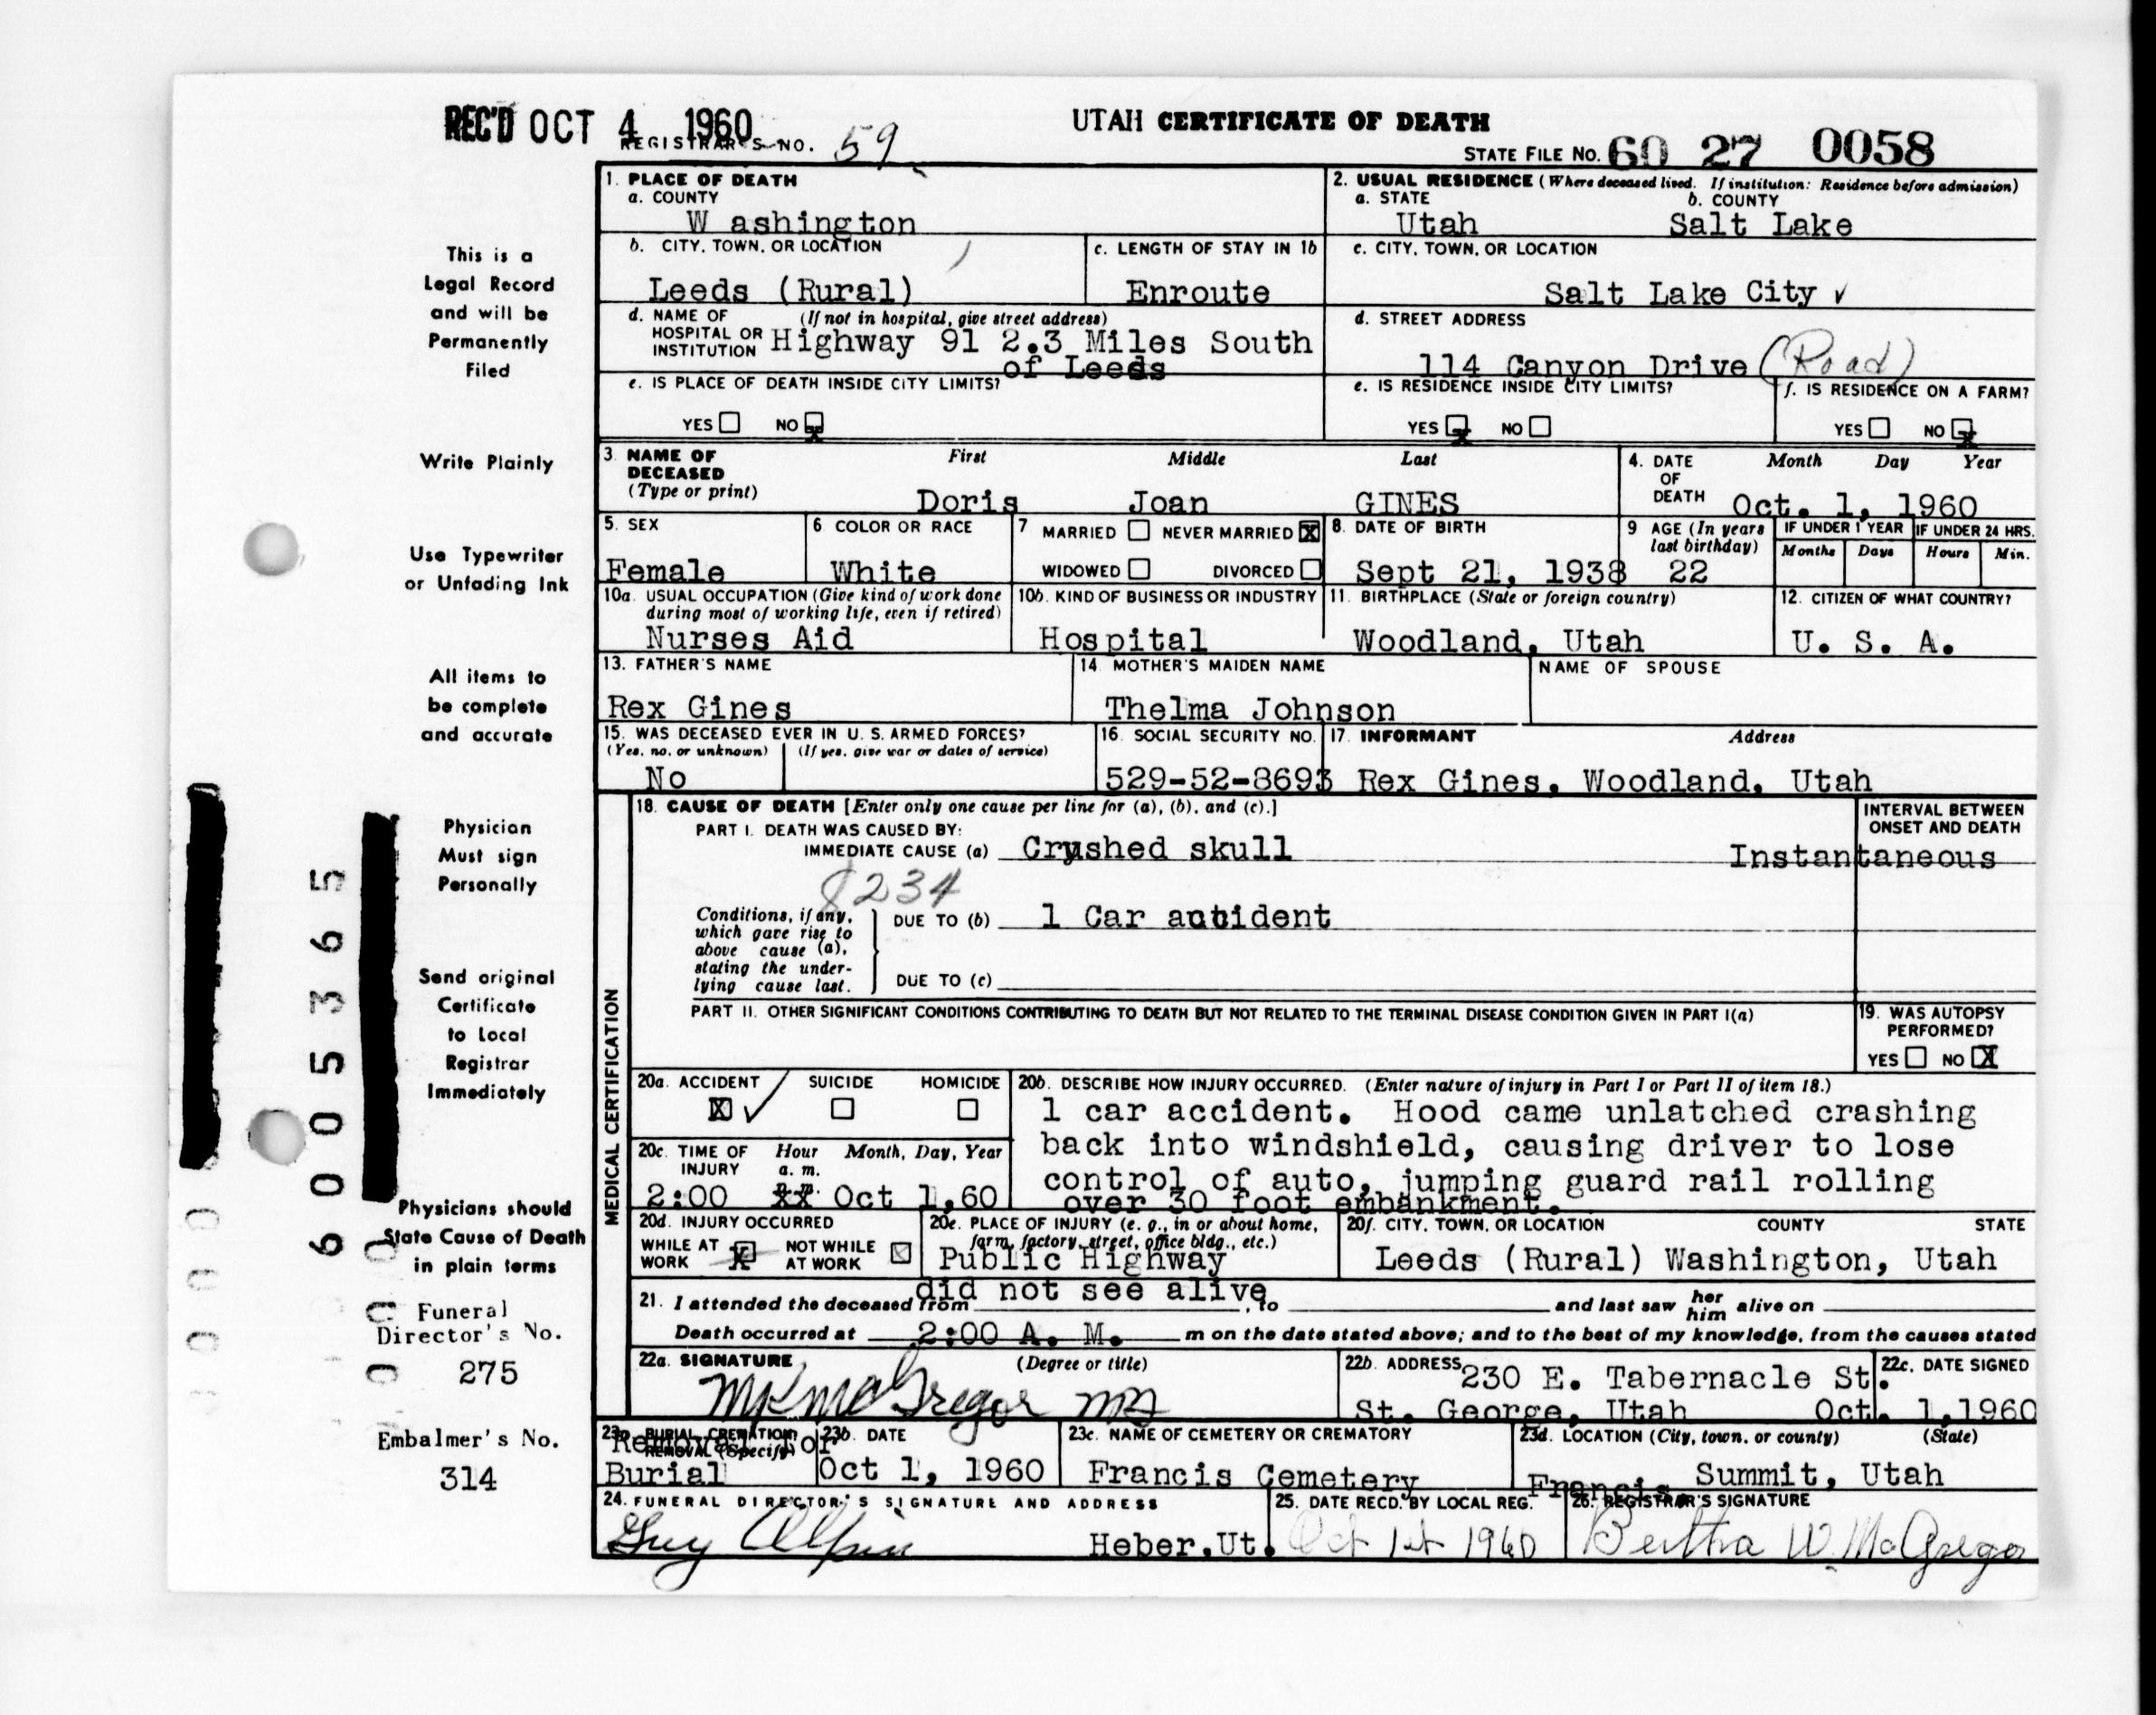 REC'D OCT 4 1960
REGISTRAR'S NO. 59
UTAH CERTIFICATE OF DEATH
STATE FILE NO. 60 27 0058
This is a
Legal Record
and will be
Permanently
Filed
Write Plainly
Use Typewriter
or Unfading Ink
All items to
be complete
and accurate
Physician
Must sign
Personally
Send original
Certificate
to Local
Registrar
Immediately
Physicians should
State Cause of Death
in plain terms
Funeral
Director's No.
275
Embalmer's No.
314
6005365
1. PLACE OF DEATH
a. COUNTY
W ashington
2. USUAL RESIDENCE (Where deceased lived. If institution: Residence before admission)
a. STATE b. COUNTY
Utah Salt Lake
b. CITY, TOWN, OR LOCATION
Leeds (Rural)
c. LENGTH OF STAY IN 1b
Enroute
c. CITY, TOWN, OR LOCATION
Salt Lake City ✓
d. NAME OF (If not in hospital, give street address)
HOSPITAL OR
INSTITUTION Highway 91 2.3 Miles South
of Leeds
d. STREET ADDRESS
114 Canyon Drive (Road)
e. IS PLACE OF DEATH INSIDE CITY LIMITS?
YES ☐ NO ☒
e. IS RESIDENCE INSIDE CITY LIMITS?
YES ☒ NO ☐
f. IS RESIDENCE ON A FARM?
YES ☐ NO ☒
3. NAME OF
DECEASED
(Type or print)
First Middle Last
Doris Joan GINES
4. DATE
OF
DEATH
Month Day Year
Oct. 1, 1960
5. SEX
Female
6 COLOR OR RACE
White
7 MARRIED ☐ NEVER MARRIED ☒
WIDOWED ☐ DIVORCED ☐
8. DATE OF BIRTH
Sept 21, 1938
9 AGE (In years
last birthday)
22
IF UNDER 1 YEAR
Months Days
IF UNDER 24 HRS.
Hours Min.
10a. USUAL OCCUPATION (Give kind of work done
during most of working life, even if retired)
Nurses Aid
10b. KIND OF BUSINESS OR INDUSTRY
Hospital
11. BIRTHPLACE (State or foreign country)
Woodland, Utah
12. CITIZEN OF WHAT COUNTRY?
U. S. A.
13. FATHER'S NAME
Rex Gines
14. MOTHER'S MAIDEN NAME
Thelma Johnson
NAME OF SPOUSE
15. WAS DECEASED EVER IN U. S. ARMED FORCES?
(Yes, no, or unknown) (If yes, give war or dates of service)
No
16. SOCIAL SECURITY NO.
529-52-8693
17. INFORMANT Address
Rex Gines, Woodland, Utah
MEDICAL CERTIFICATION
18. CAUSE OF DEATH [Enter only one cause per line for (a), (b), and (c).]
PART I. DEATH WAS CAUSED BY:
IMMEDIATE CAUSE (a) Crushed skull
INTERVAL BETWEEN
ONSET AND DEATH
Instantaneous
8234
Conditions, if any,
which gave rise to
above cause (a),
stating the under-
lying cause last.
DUE TO (b) 1 Car accident
DUE TO (c)
PART II. OTHER SIGNIFICANT CONDITIONS CONTRIBUTING TO DEATH BUT NOT RELATED TO THE TERMINAL DISEASE CONDITION GIVEN IN PART I(a)
19. WAS AUTOPSY
PERFORMED?
YES ☐ NO ☒
20a. ACCIDENT SUICIDE HOMICIDE
☒ ✓ ☐ ☐
20b. DESCRIBE HOW INJURY OCCURRED. (Enter nature of injury in Part I or Part II of item 18.)
1 car accident. Hood came unlatched crashing
back into windshield, causing driver to lose
control of auto, jumping guard rail rolling
over 30 foot embankment.
20c. TIME OF
INJURY
Hour Month, Day, Year
a. m.
p. m.
2:00 xx Oct 1,60
20d. INJURY OCCURRED
WHILE AT
WORK ☒
NOT WHILE
AT WORK ☒
20e. PLACE OF INJURY (e. g., in or about home,
farm, factory, street, office bldg., etc.)
Public Highway
20f. CITY, TOWN, OR LOCATION COUNTY STATE
Leeds (Rural) Washington, Utah
did not see alive
21. I attended the deceased from , to and last saw her him alive on
Death occurred at 2:00 A. M. m on the date stated above; and to the best of my knowledge, from the causes stated
22a. SIGNATURE (Degree or title)
MKMcGregor MD
22b. ADDRESS 230 E. Tabernacle St.
St. George, Utah
22c. DATE SIGNED
Oct. 1,1960
23a. BURIAL, CREMATION,
REMOVAL (Specify)
Removal for
Burial
23b. DATE
Oct 1, 1960
23c. NAME OF CEMETERY OR CREMATORY
Francis Cemetery
23d. LOCATION (City, town, or county) (State)
Francis, Summit, Utah
24. FUNERAL DIRECTOR'S SIGNATURE AND ADDRESS
Guy Alpin Heber,Ut.
25. DATE RECD. BY LOCAL REG.
Oct 1st 1960
26. REGISTRAR'S SIGNATURE
Bertha W. McGregor